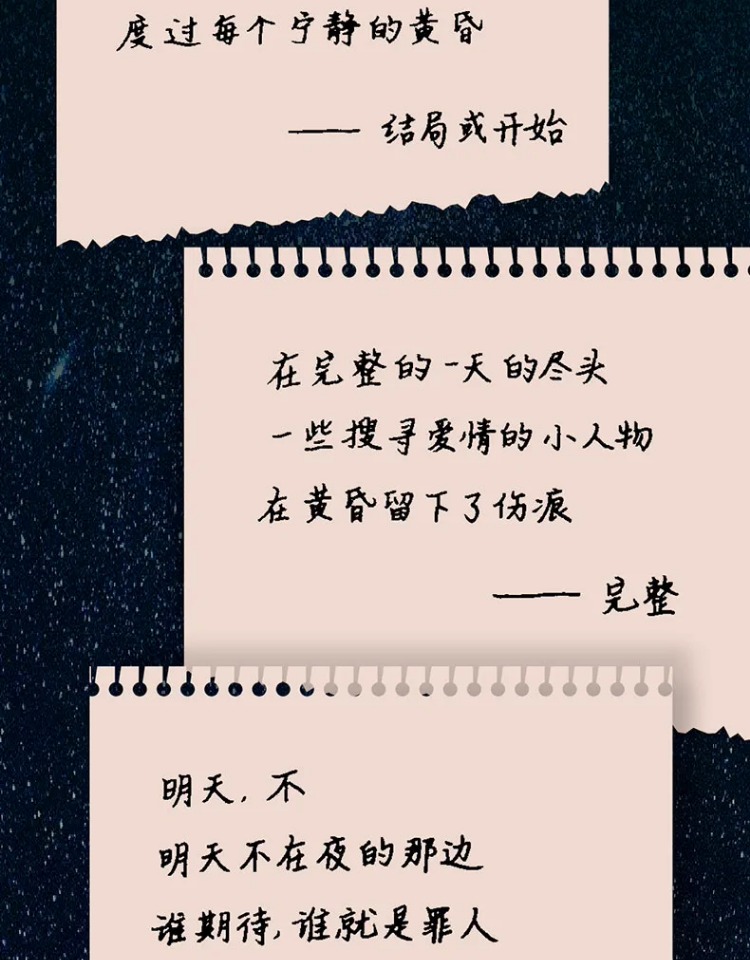 度过每个宁静的黄昏
—— 结局或开始
在完整的一天的尽头
一些搜寻爱情的小人物
在黄昏留下了伤痕
—— 完整
明天，不
明天不在夜的那边
谁期待，谁就是罪人